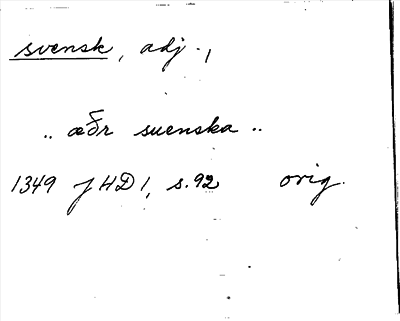 svensk, adj.,
.. æðr suenska ..
1349 JHD 1, s.92 orig.